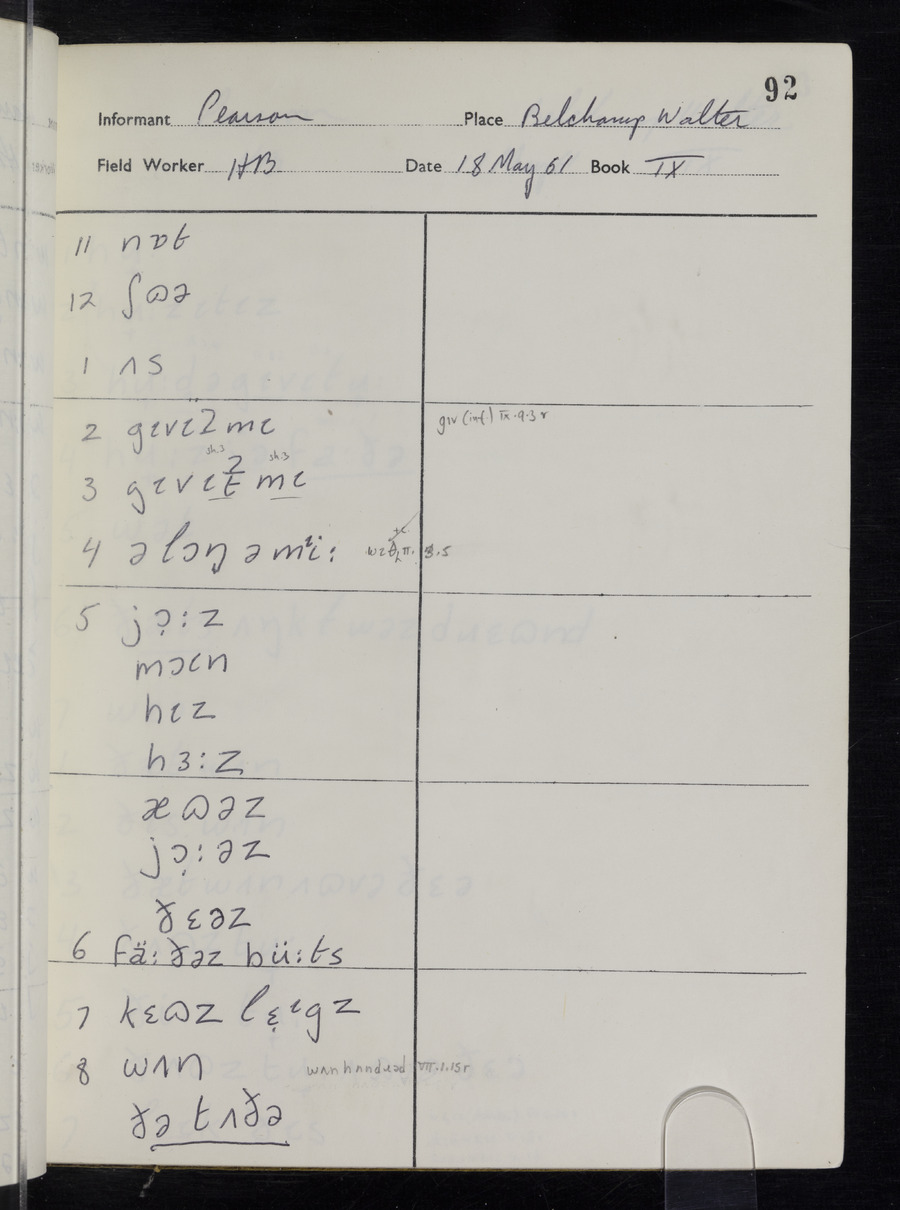 92
Informant Pearson Place Belchamp Walter
Field Worker HB Date 18 May 61 Book IX
11 nɒt
12 ʃɷə
1 ʌs
2 gɪvɪʔmɪ
gɪv (inf.) IX.9.3 r
sh.3 ʔ sh.3
3 gɪvɪt mɪ
4 ə lɔŋ ə mⁱi:
5 jɔ̣:z
mɔɪn
hɪz
hɜ:z
æɷəz
jɔ̣:əz
ðɛəz
6 fä:ðəz bü:ts
7 kɛɷz lɛ̣ɪgz
8 wʌn wʌn hʌndɹəd VII.1.15r
ðə tʌðə